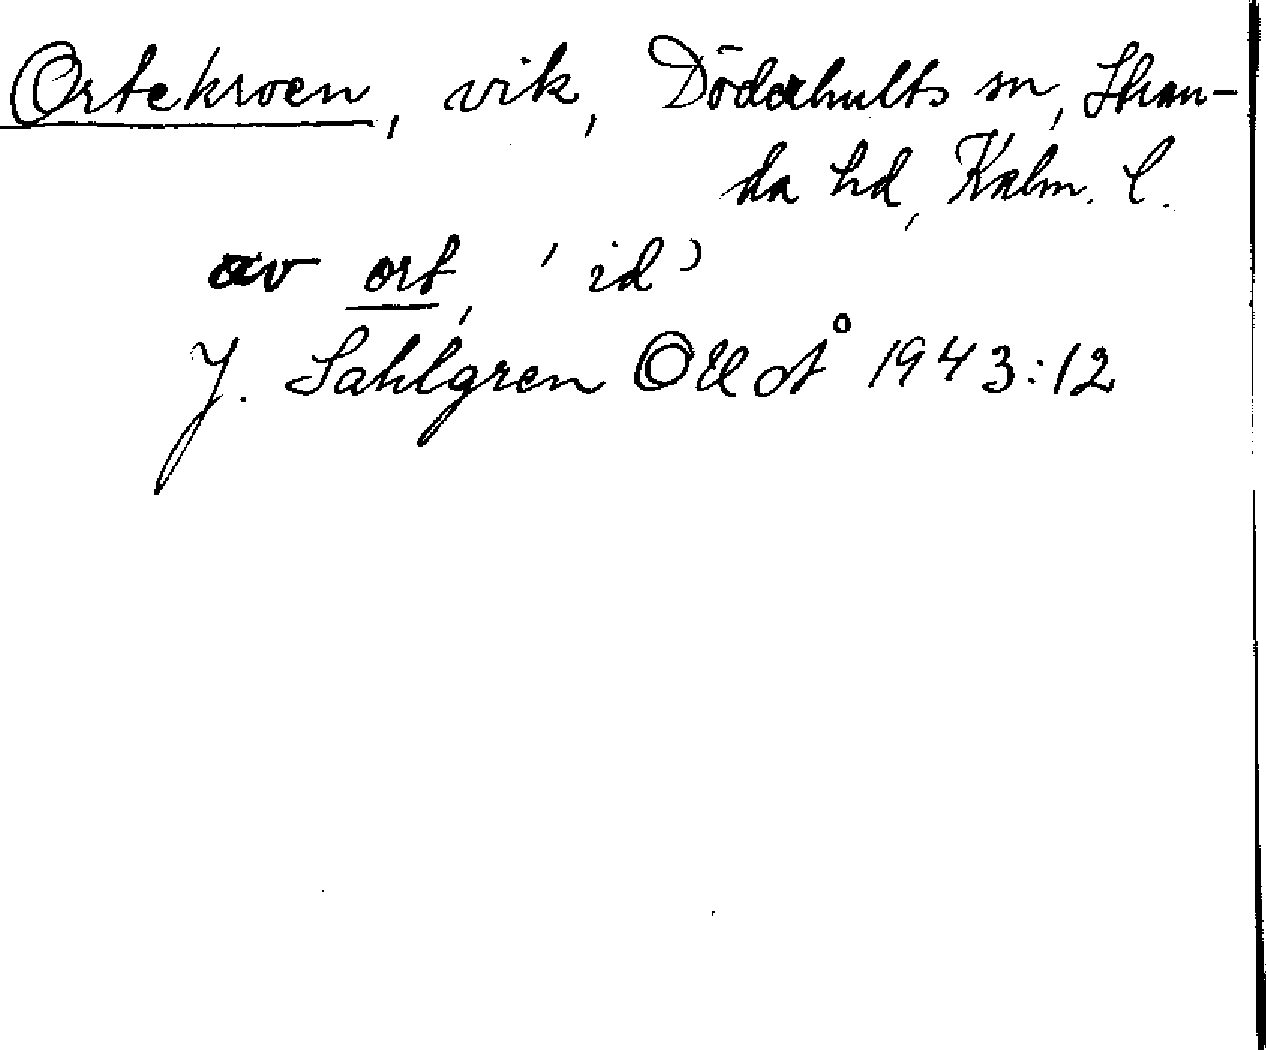 Ortekroen, vik, Döderhults sn, Stran-
da hd, Kalm. l.
av ort, 'id'
J. Sahlgren OUoÅ 1943:12